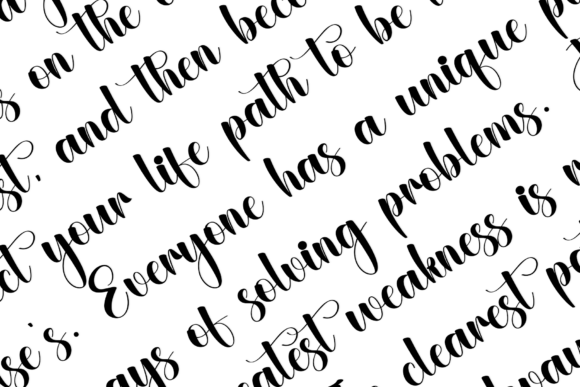 on the
st, and then bec
ct your life path to be
se's. Everyone has a unique p
ays of solving problems.
eatest weakness is
clearest pa
lway